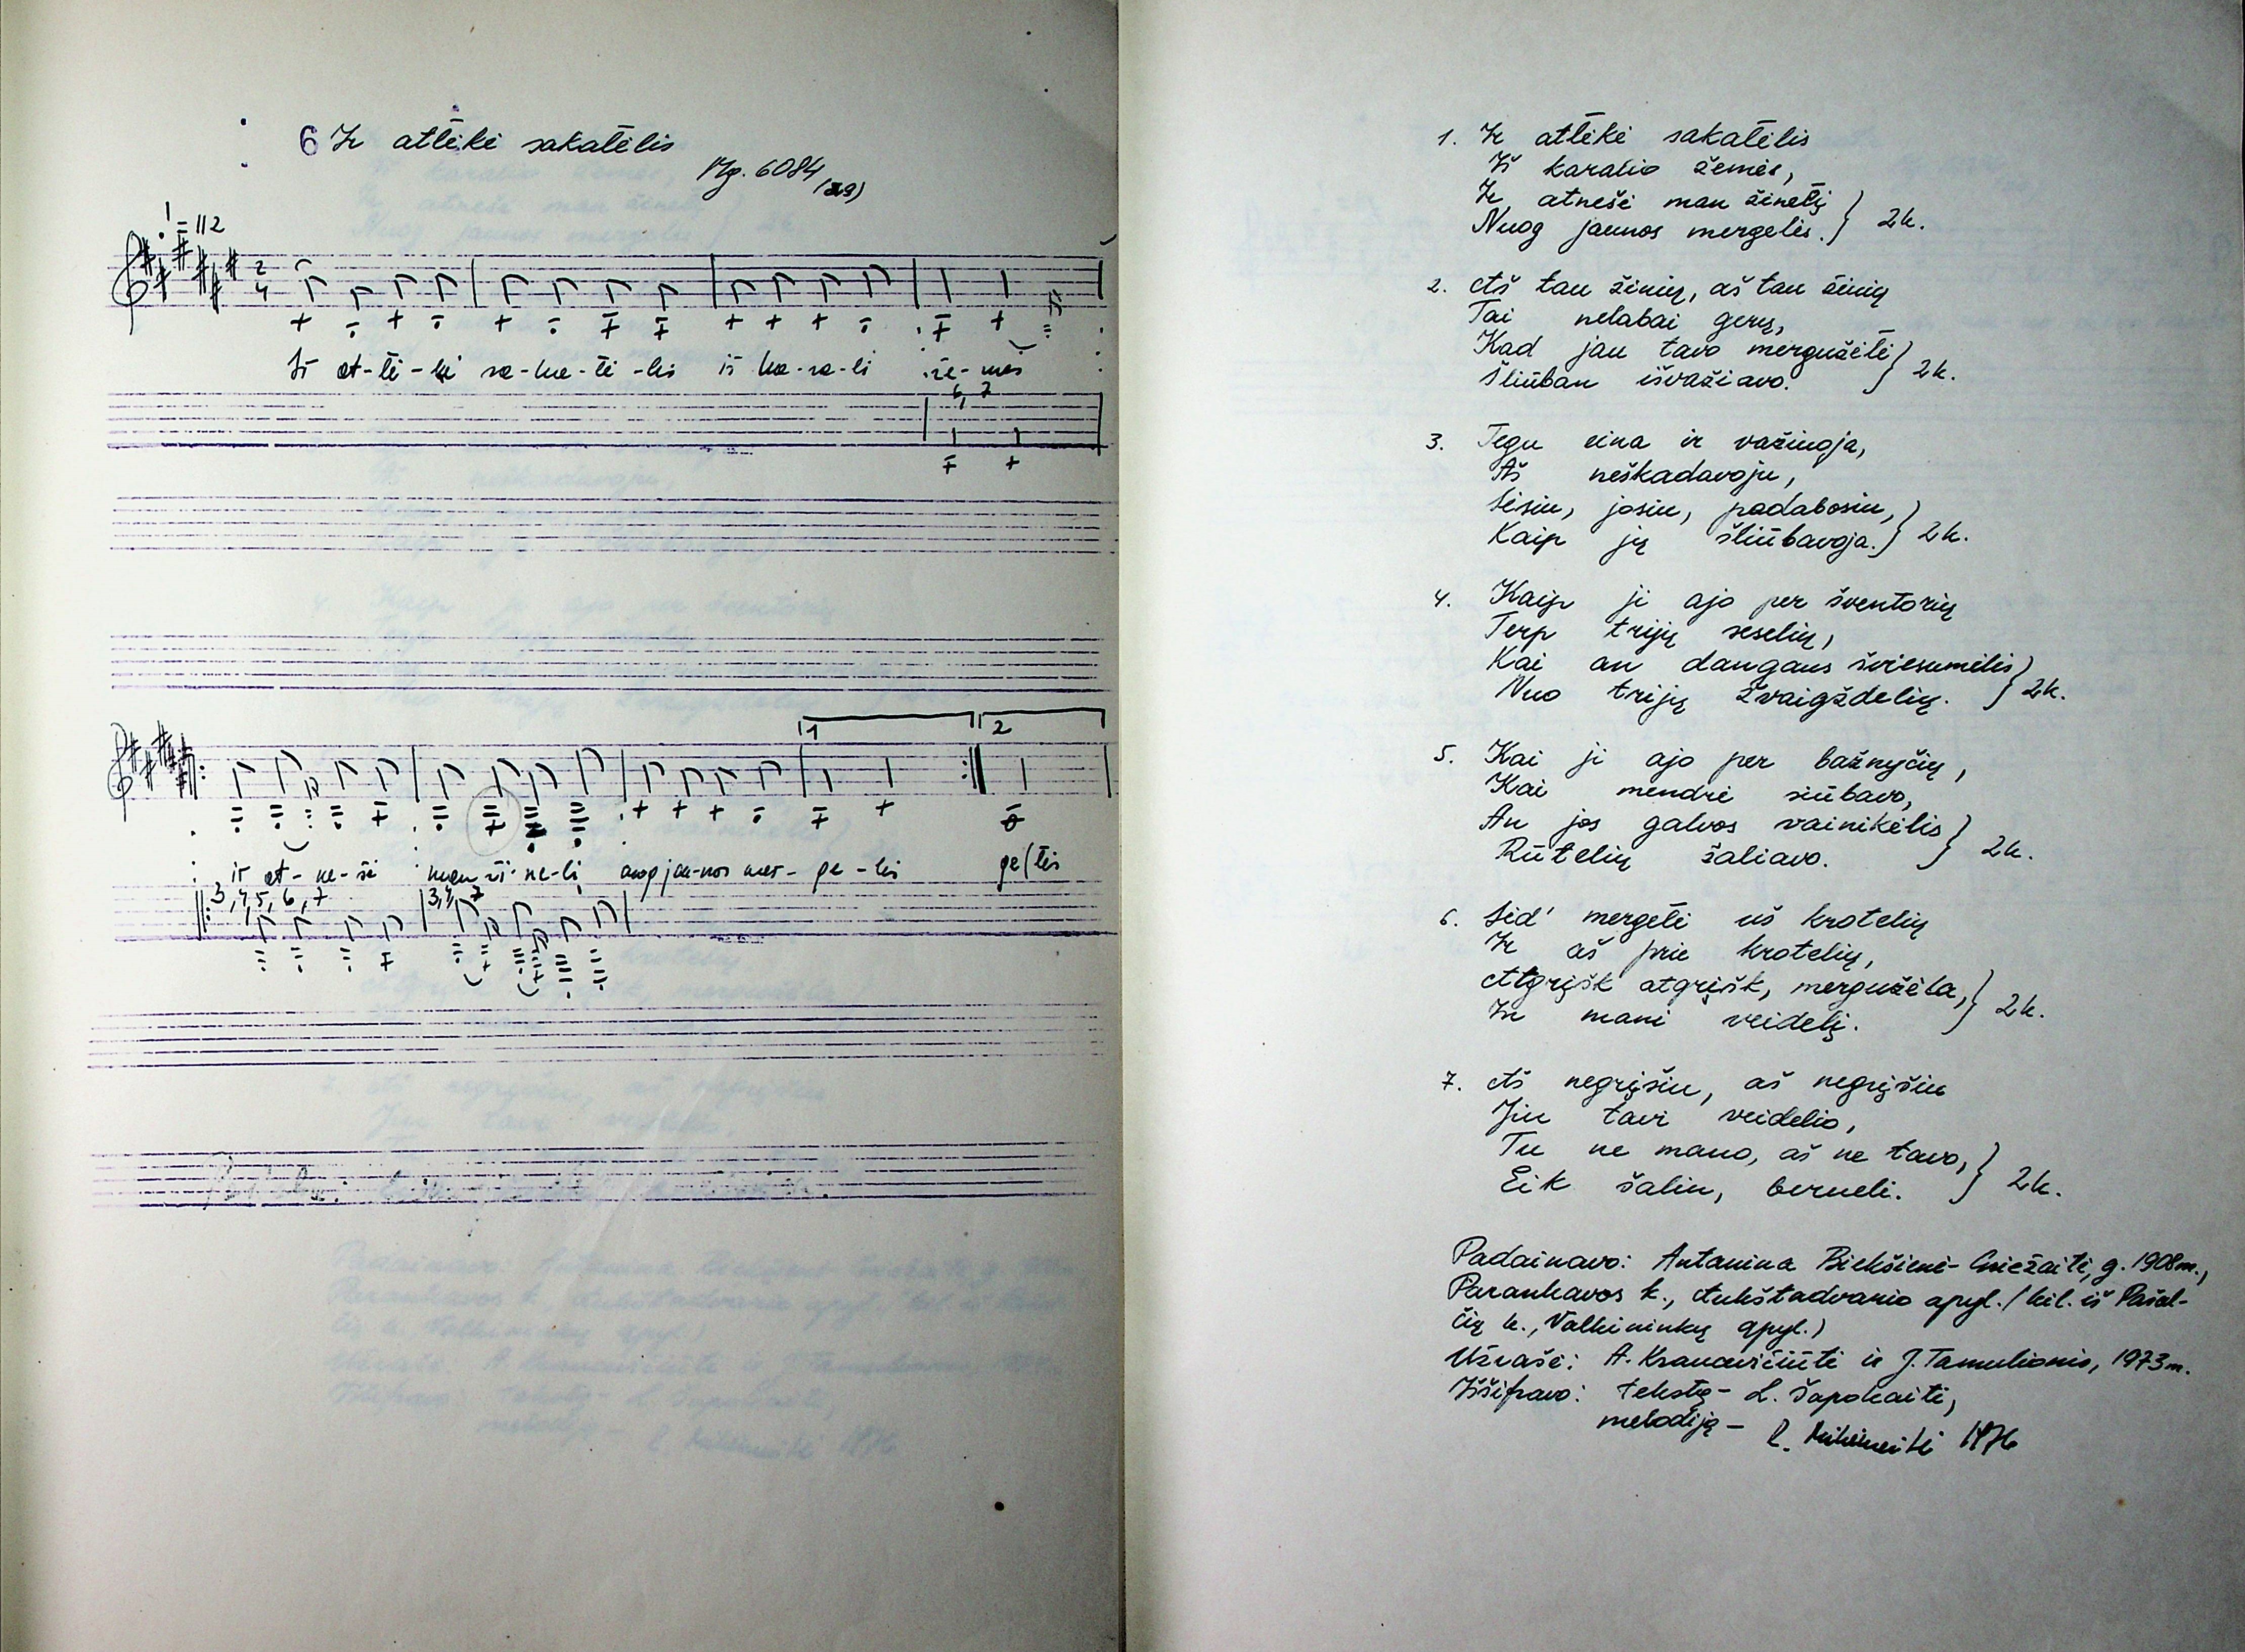 6 Ir atlėkė sakatėlis
Mg. 6084 (29)
♩ = 112
2
4
Ir at-lė-kė sa-ka-tė-lis iš ka-ra-li žė-mės
6, 7
1 2
ir at-ne-šė man ži-ne-lį nuog jau-nos mer-ge-lės ge(lės
3, 4, 5, 6, 7 3, 4, 7
1. Ir atlėkė sakatėlis
Iš karalio žemės,
Ir atnešė man žinelį
Nuog jaunos mergelės. } 2k.
2. Aš tau žinių, aš tau žinių
Tai nelabai gerų,
Kad jau tavo mergužėlė
Šliūban išvažiavo. } 2k.
3. Tegu eina ir važiuoja,
Aš neškadavoju,
Sėsiu, josiu, padabosiu,
Kaip jų šliūbavoja. } 2k.
4. Kaip ji ajo per šventorių
Terp trijų seselių,
Kai an dangaus šviesumėlis
Nuo trijų žvaigždelių. } 2k.
5. Kai ji ajo per bažnyčių,
Kai mendrė siūbavo,
An jos galvos vainikėlis
Rūtelių šaliavo. } 2k.
6. Sėd' mergelė už krotelių
Ir aš prie krotelių,
Atgrįšk atgrįšk, mergužėla,
In mani veidelį. } 2k.
7. Aš negrįšiu, aš negrįšiu
Jin tavi veidelio,
Tu ne mano, aš ne tavo,
Eik šaliu, berneli. } 2k.
Padainavo: Antanina Biekšienė-Gniežaitė, g. 1908 m.,
Parankavos k., Aukštadvario apyl. (kil. iš Pašal-
čių k., Valkininkų apyl.)
Užrašė: A. Krancevičiūtė ir J. Tamulionis, 1973 m.
Iššifravo: tekstą - L. Šapokaitė,
melodiją - 1976